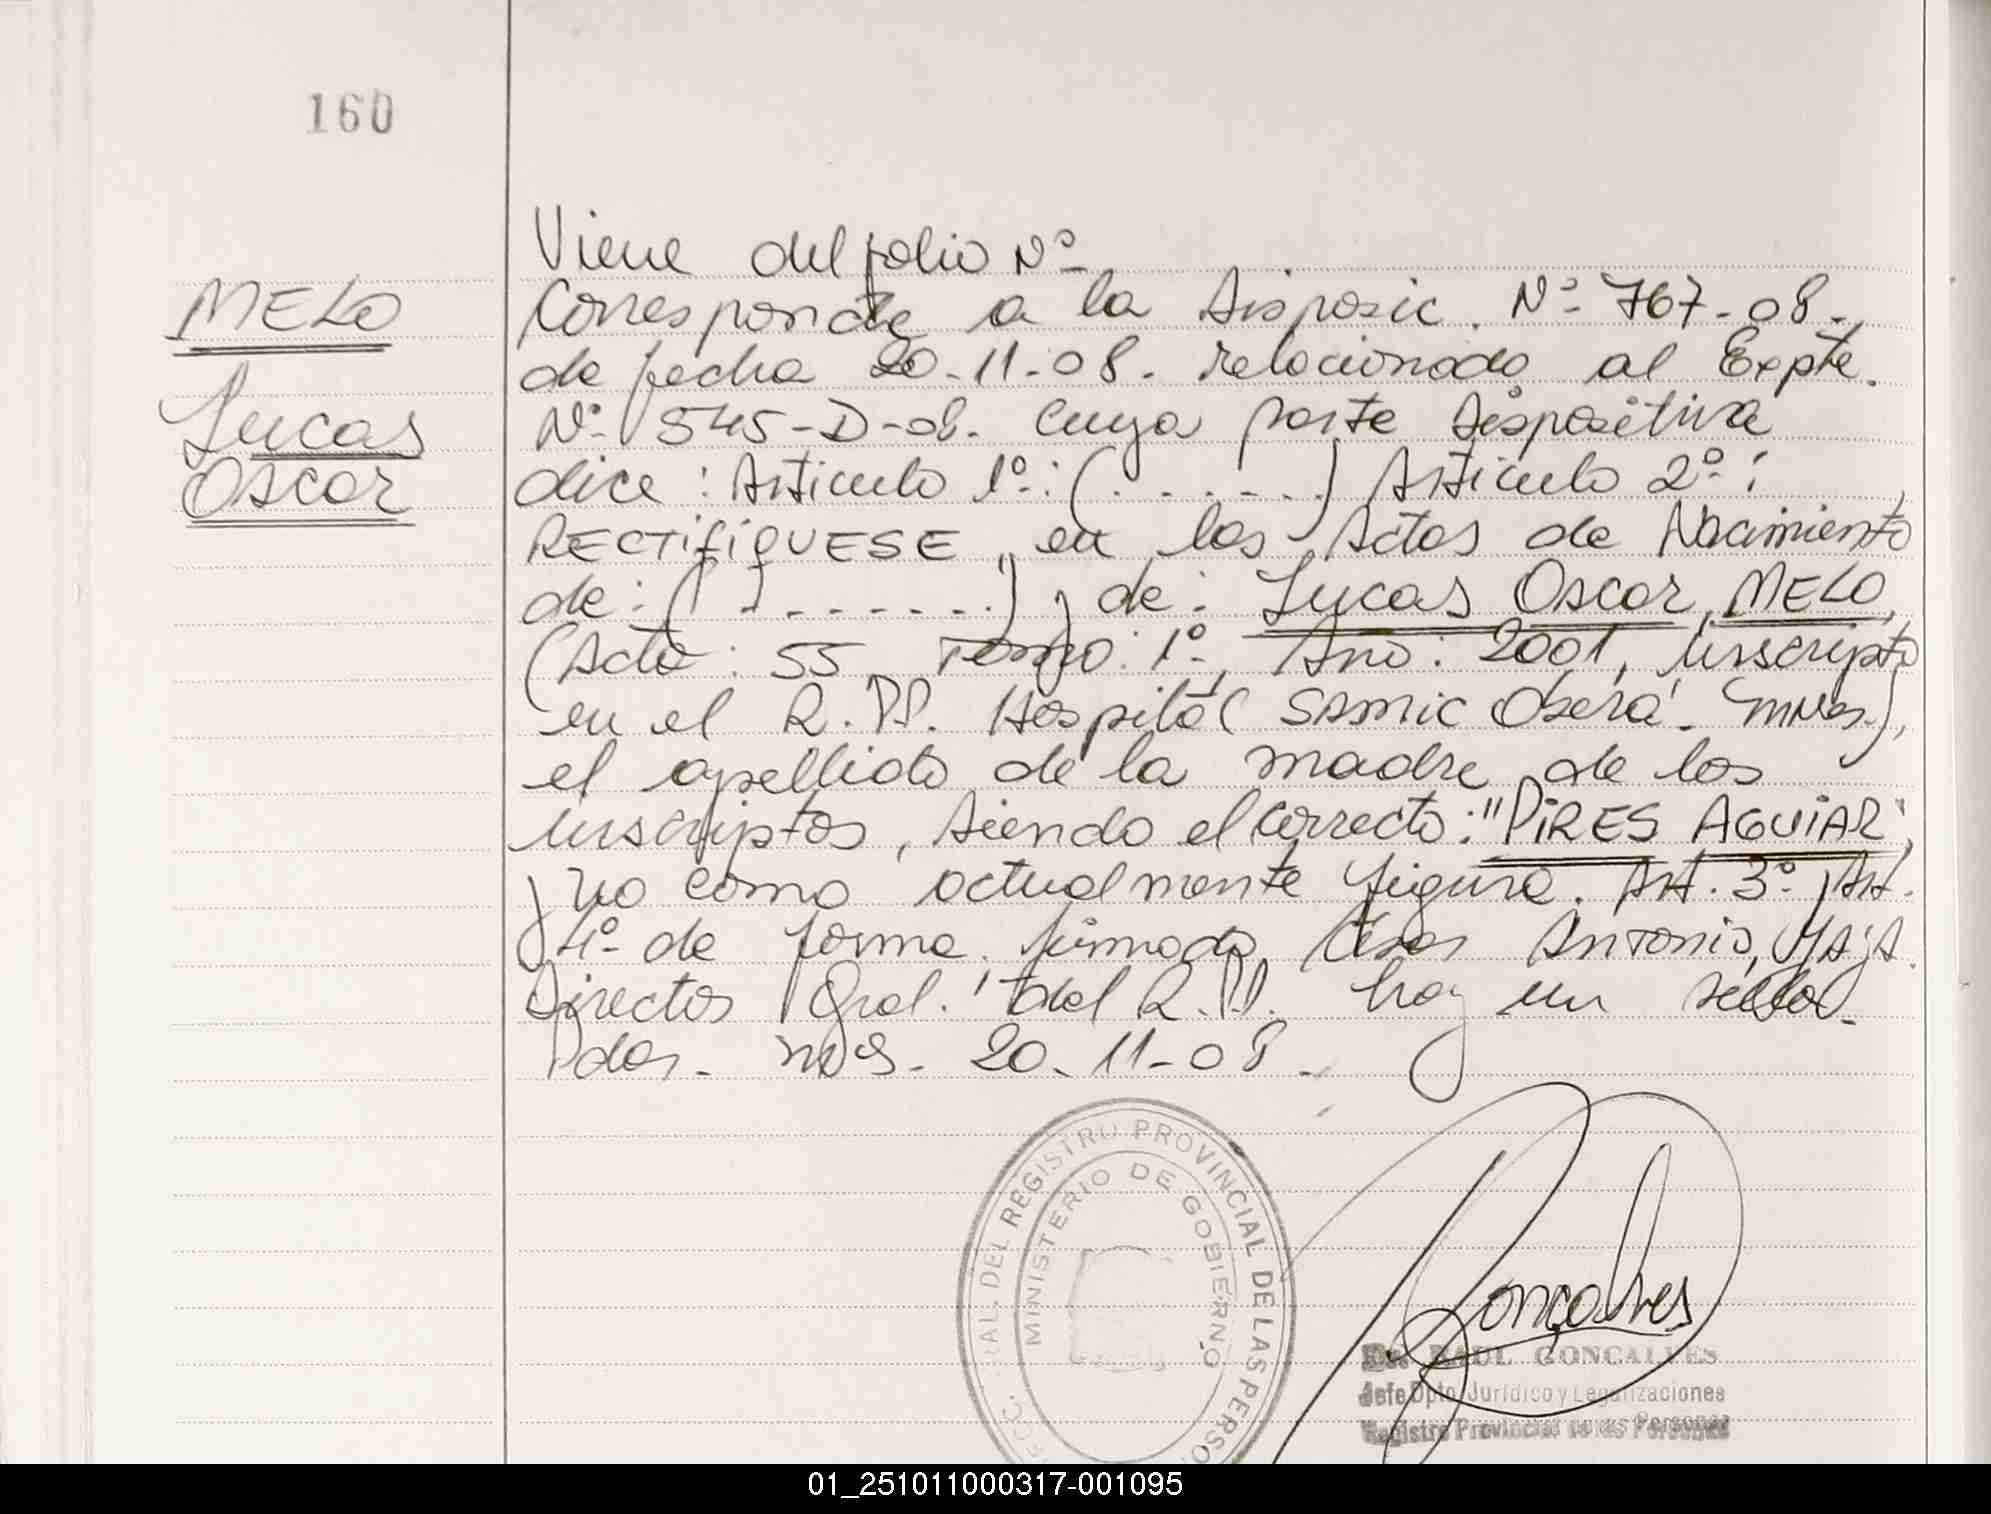 160
MELO
Lucas
Oscar
Viene del folio Nº
Corresponde a la Disposic. Nº 767-08.,
de fecha 20-11-08. relacionado al Expte.
Nº 545-D-08. cuya parte dispositiva
dice: Articulo 1º: (. . . . . .) Articulo 2º:
RECTIFIQUESE, en las Actas de Nacimiento
de: (. . . . . . .) y de: Lucas Oscar, MELO,
(Acta: 55 Tomo: 1º, Año: 2001, inscripto
en el R.PP. Hospital SAMIC Oberá. Mnes.),
el apellido de la madre de los
inscriptos, siendo el correcto: "PIRES AGUIAR",
y no como actualmente figura. Art. 3º y Art.
4º de forma. firmado, Cesar Antonio,
Director Gral. del R.PP. hay un sello.
Pdas. Mns. 20-11-08.
REGISTRO PROVINCIAL DE LAS PERSO
MINISTERIO DE GOBIERNO
Gonçalves
Dr. RAUL GONCALVES
Jefe Dpto. Jurídico y Legalizaciones
Registro Provincial de las Personas
01_251011000317-001095